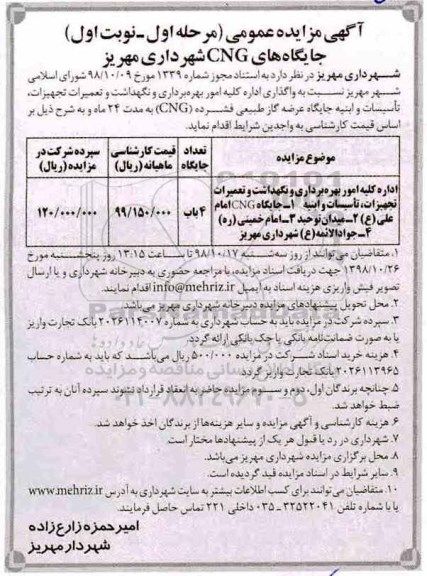 آگهی مزایده عمومی (مرحله اول ـ نوبت اول)
جایگاه‌های CNG شهرداری مهریز
شهرداری مهریز در نظر دارد به استناد مجوز شماره ۱۳۳۹ مورخ ۹۸/۱۰/۰۹ شورای اسلامی
شهر مهریز نسبت به واگذاری اداره کلیه امور بهره‌برداری و نگهداشت و تعمیرات تجهیزات،
تأسیسات و ابنیه جایگاه عرضه گاز طبیعی فشرده (CNG) به مدت ۲۴ ماه و به شرح ذیل بر
اساس قیمت کارشناسی به واجدین شرایط اقدام نماید.
موضوع مزایده تعداد جایگاه قیمت کارشناسی ماهیانه (ریال) سپرده شرکت در مزایده (ریال)
اداره کلیه امور بهره‌برداری و نگهداشت و تعمیرات
تجهیزات، تأسیسات و ابنیه ۱ـ جایگاه CNG امام
علی (ع) ۲ـ میدان توحید ۳ـ امام خمینی (ره)
۴ـ جوادالائمه (ع) شهرداری مهریز
۴ باب ۹۹/۱۵۰/۰۰۰ ۱۲۰/۰۰۰/۰۰۰
۱. متقاضیان می‌توانند از روز سه‌شنبه ۹۸/۱۰/۱۷ تا ساعت ۱۳:۱۵ روز پنجشنبه مورخ
۱۳۹۸/۱۰/۲۶ جهت دریافت اسناد مزایده، با مراجعه حضوری به دبیرخانه شهرداری و یا ارسال
تصویر فیش واریزی هزینه اسناد به ایمیل info@mehriz.ir اقدام نمایند.
۲. محل تحویل پیشنهادهای مزایده دبیرخانه شهرداری مهریز می‌باشد.
۳. سپرده شرکت در مزایده باید به حساب شهرداری به شماره ۲۰۲۶۱۱۴۰۰۷ بانک تجارت واریز
یا به صورت ضمانت‌نامه بانکی یا چک بانکی ارائه گردد.
۴. هزینه خرید اسناد شرکت در مزایده ۵۰۰/۰۰۰ ریال می‌باشد که باید به شماره حساب
۲۰۲۶۱۱۳۹۶۵ بانک تجارت واریز گردد.
۵. چنانچه برندگان اول، دوم و سوم مزایده حاضر به انعقاد قرارداد نشوند سپرده آنان به ترتیب
ضبط خواهد شد.
۶. هزینه کارشناسی و آگهی مزایده و سایر هزینه‌ها از برندگان اخذ خواهد شد.
۷. شهرداری در رد یا قبول هر یک از پیشنهادها مختار است.
۸. محل برگزاری مزایده شهرداری مهریز می‌باشد.
۹. سایر شرایط در اسناد مزایده قید گردیده است.
۱۰. متقاضیان می‌توانند برای کسب اطلاعات بیشتر به سایت شهرداری به آدرس www.mehriz.ir
یا با شماره تلفن ۳۲۵۲۲۰۴۱-۰۳۵ داخلی ۲۲۱ تماس حاصل فرمایند.
امیر حمزه زارع زاده
شهردار مهریز